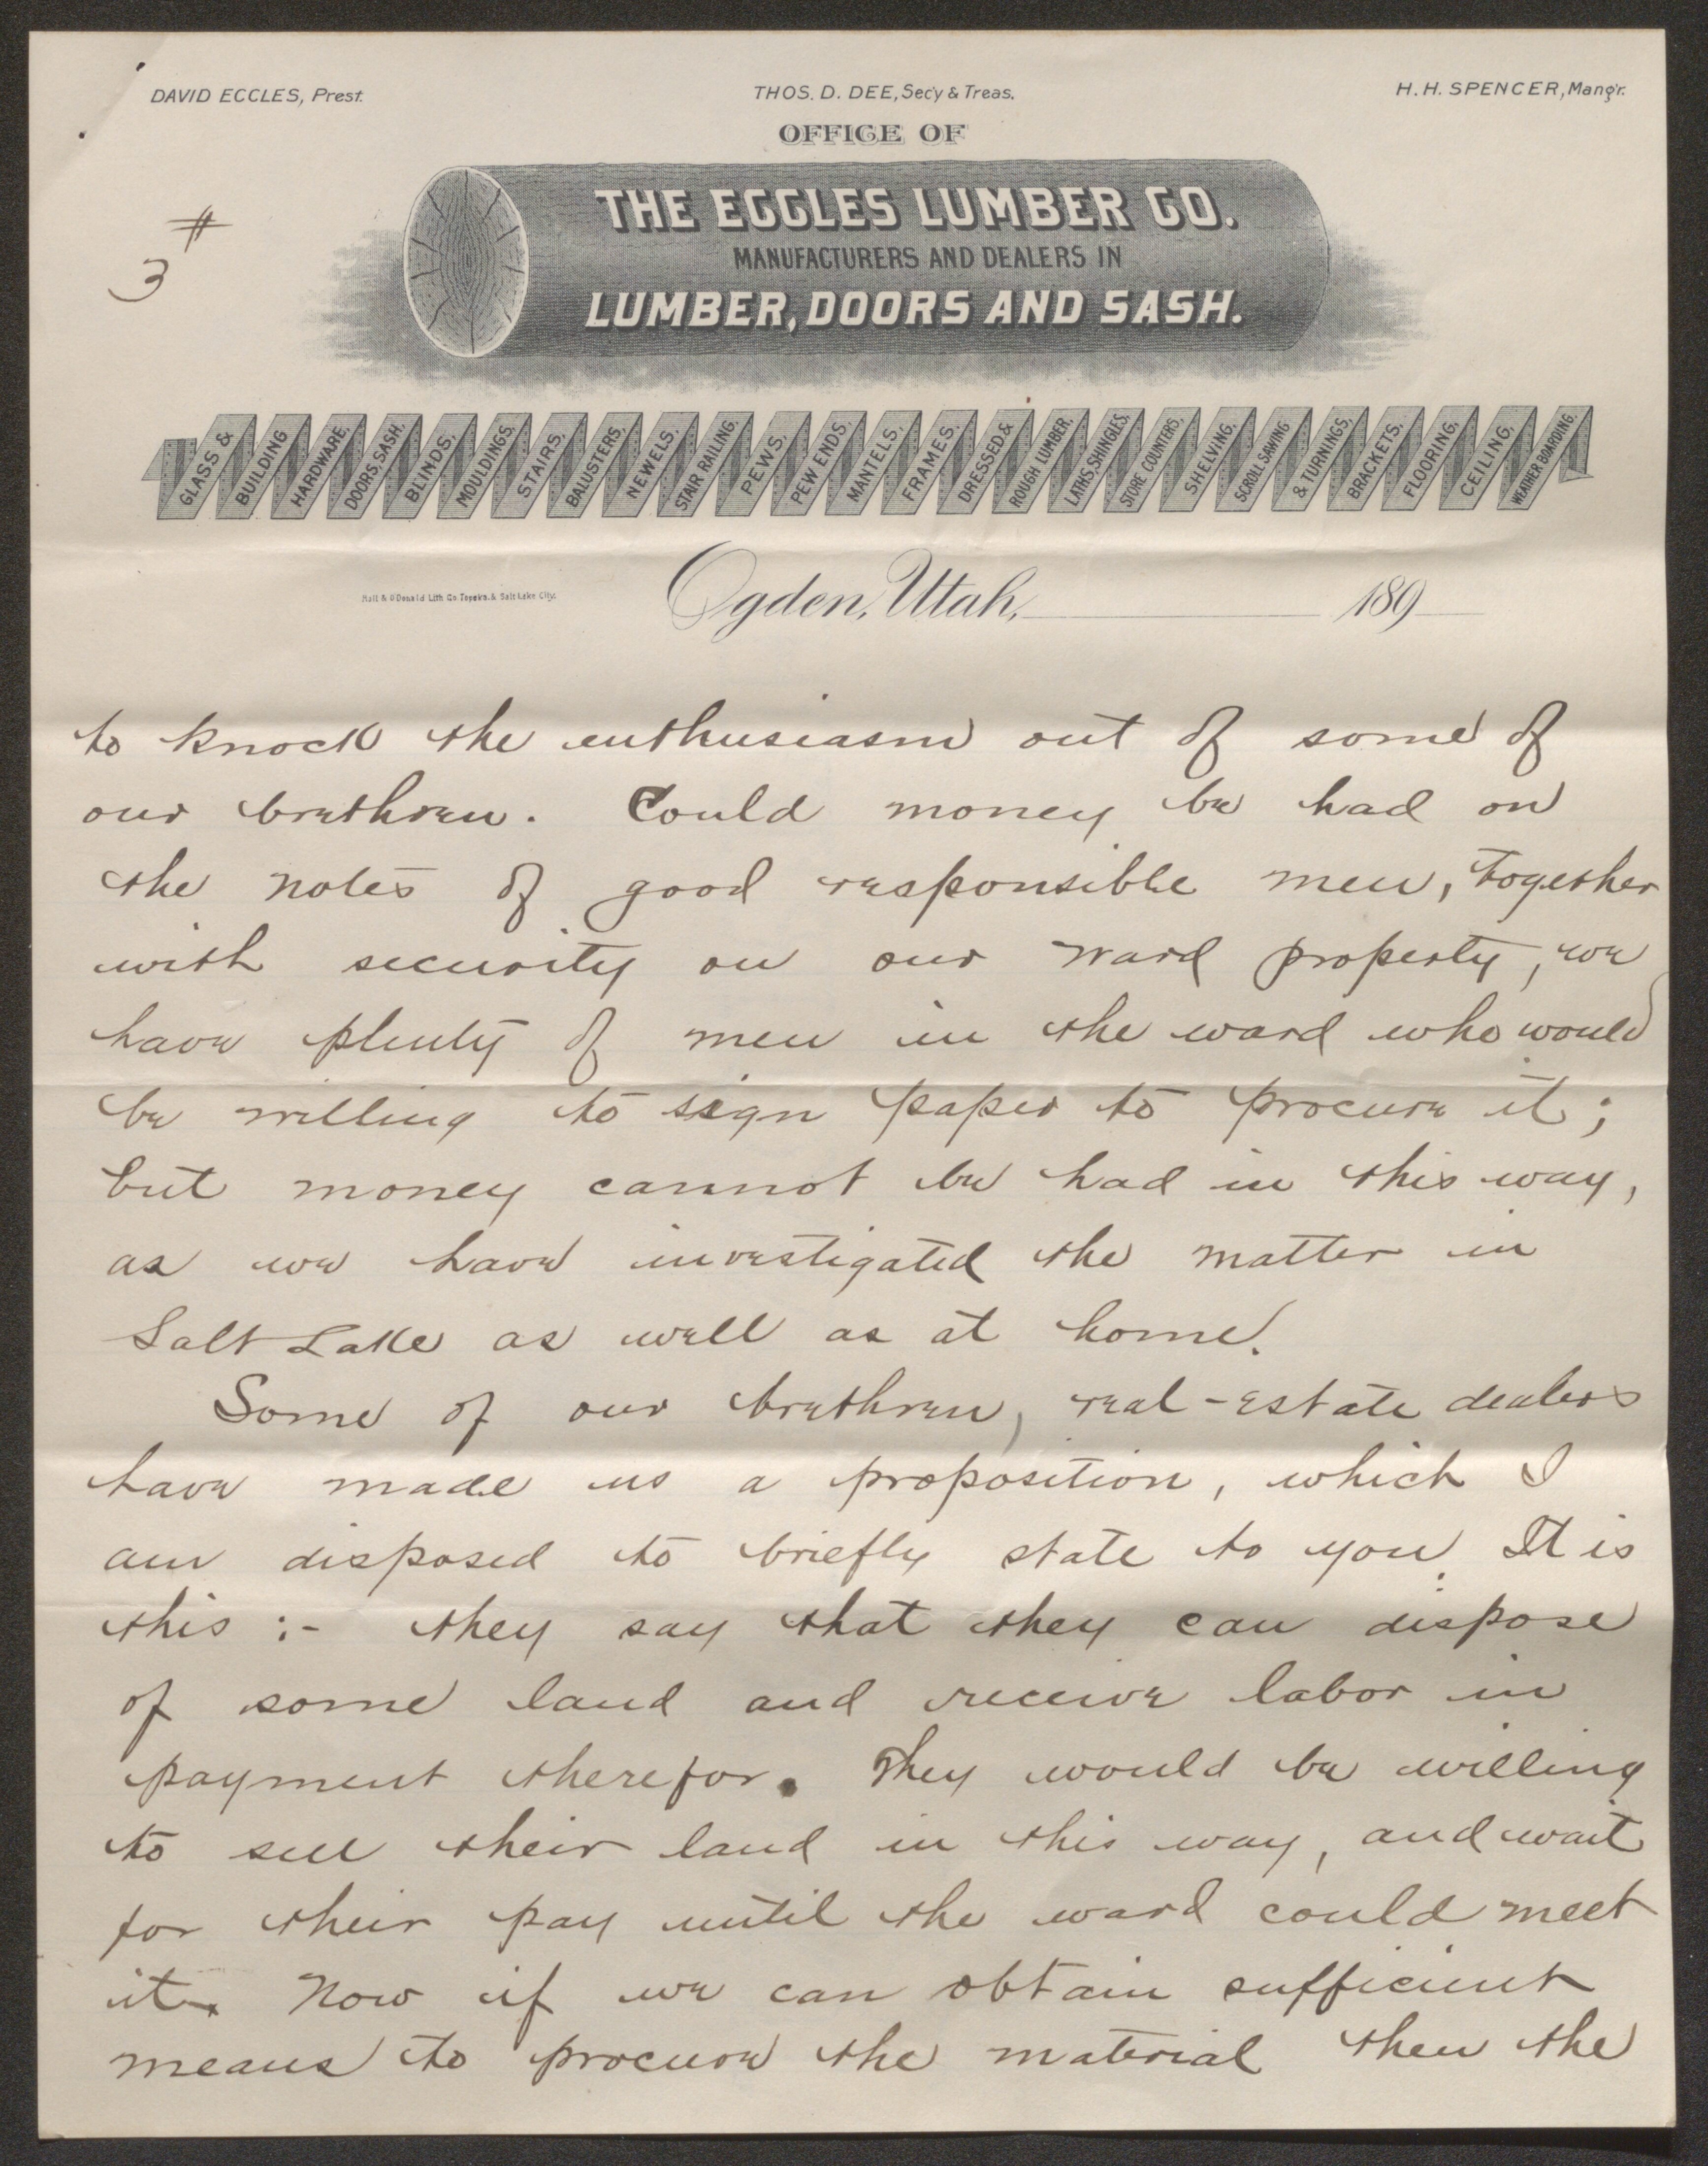 DAVID ECCLES, Prest.
THOS. D. DEE, Sec'y & Treas.
H. H. SPENCER, Mang'r.
OFFICE OF
THE ECCLES LUMBER CO.
MANUFACTURERS AND DEALERS IN
LUMBER, DOORS AND SASH.
#
3
GLASS & BUILDING HARDWARE, DOORS, SASH, BLINDS, MOULDINGS, STAIRS, BALUSTERS, NEWELS, STAIR RAILING, PEWS, PEW ENDS, MANTELS, FRAMES, DRESSED & ROUGH LUMBER, LATHS, SHINGLES, STORE COUNTERS, SHELVING, SCROLL SAWING & TURNINGS, BRACKETS, FLOORING, CEILING, WEATHER BOARDING.
& O'Donald Lith Co Topeka & Salt Lake City.
Ogden, Utah, 189
to knock the enthusiasm out of some of
our brethren. Could money be had on
the notes of good responsible men, together
with security on our ward property, we
have plenty of men in the ward who would
be willing to sign paper to procure it;
but money cannot be had in this way,
as we have investigated the matter in
Salt Lake as well as at home.
Some of our brethren, real-estate dealers
have made us a proposition, which I
am disposed to briefly state to you. It is
this :- they say that they can dispose
of some land and receive labor in
payment therefor. They would be willing
to sell their land in this way, and wait
for their pay until the ward could meet
it. Now if we can obtain sufficient
means to procure the material then the